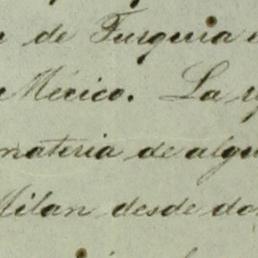 de Turquia
Mexico. La
materia de algu
Milan desde do